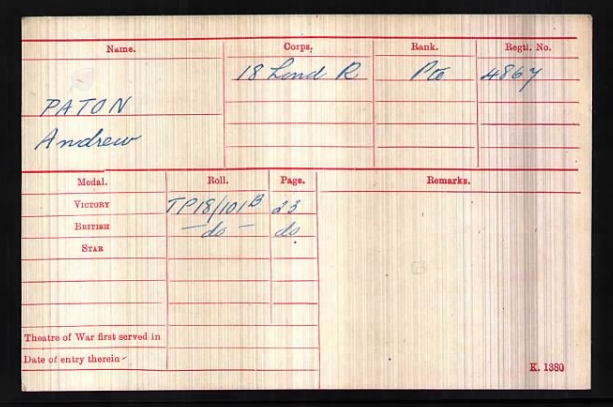 Name. Corps. Rank. Regtl. No.
18 Lond R Pte 4867
PATON
Andrew
Medal. Roll. Page. Remarks.
VICTORY TP18/101B 23
BRITISH — do — do
STAR
Theatre of War first served in
Date of entry therein
K. 1380